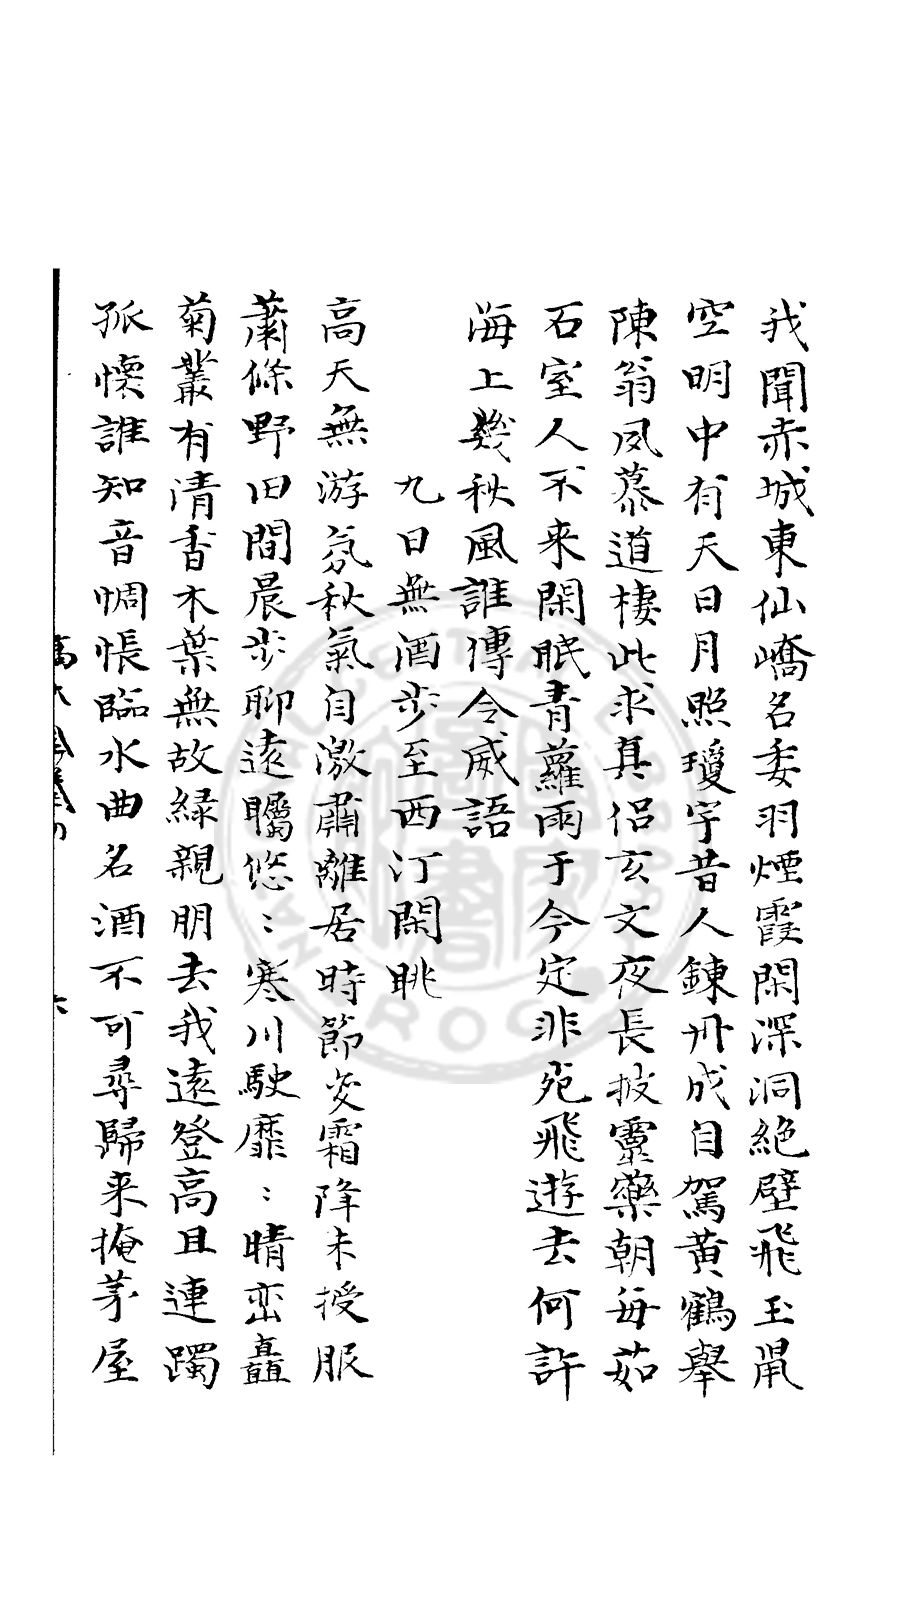 我聞赤城東仙嶠名委羽煙霞閑深洞絶壁飛玉鼡
空明中有天日月照瓊宇昔人錬丹成自駕黃鶴舉
陳翁夙慕道棲此求真侶玄文夜長披靈藥朝每茹
石室人不来閑眠青蘿雨于今定非死飛遊去何許
海上幾秋風誰傳令威語
九日無酒步至西汀閑眺
高天無游氛秋氣自激肅離居時節変霜降未授服
蕭條野田間晨步聊遠矚悠：寒川駛靡：晴巒矗
菊叢有清香木葉無故緑親朋去我遠登高且連躅
孤懷誰知音惆悵臨水曲名酒不可尋歸来掩茅屋